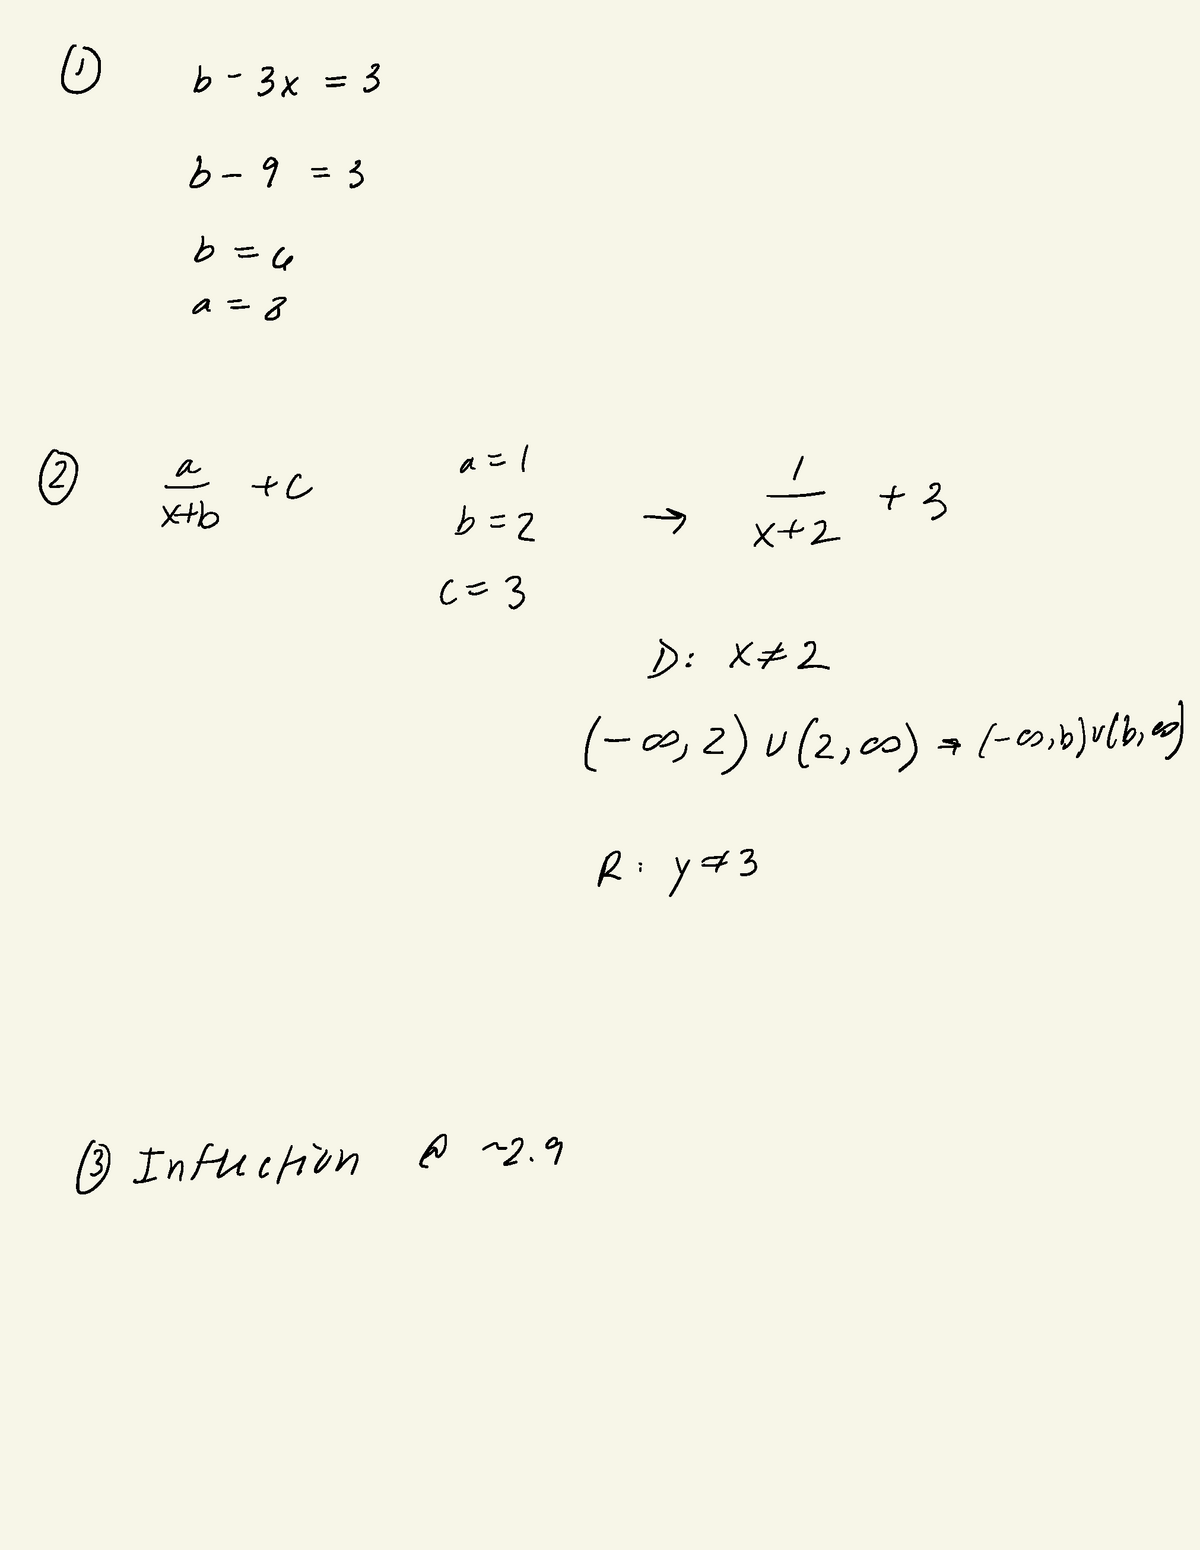 ① b - 3x = 3
b - 9 = 3
b = 6
a = 8
② a/(x+b) + c a = 1 b = 2 c = 3 → 1/(x+2) + 3
D: x ≠ 2
(-∞, 2) ∪ (2, ∞) → (-∞, b) ∪ (b, ∞)
R: y ≠ 3
③ Inflection @ ~2.9